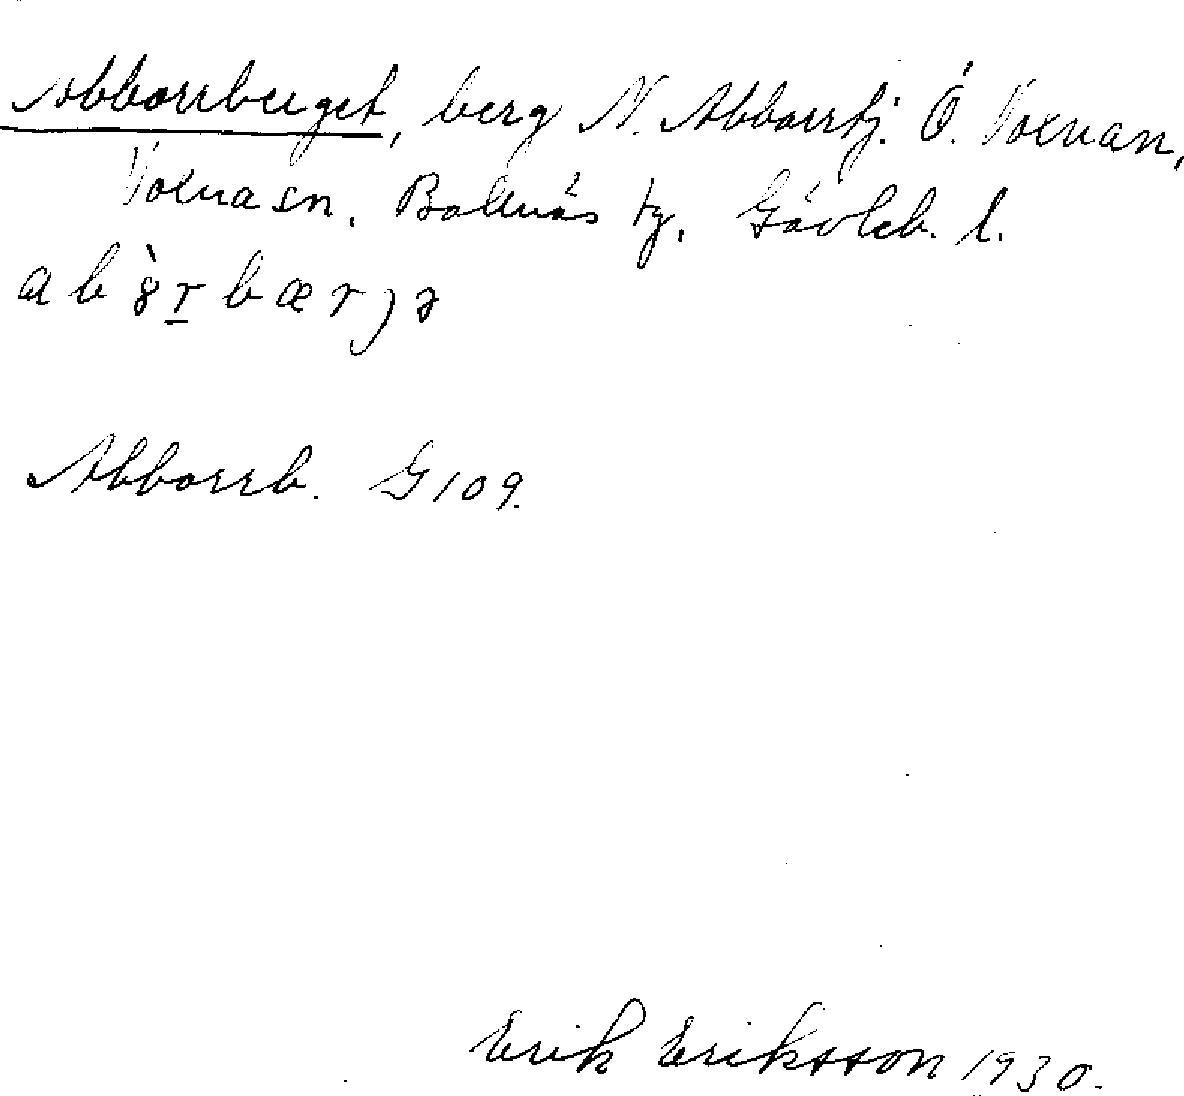 Abborrberget, berg N. Abborrtj. Ö. Voxnan,
Voxna sn. Bollnäs tg, Gävleb. l.
Abborrb. G 109.
Erik Eriksson 1930.